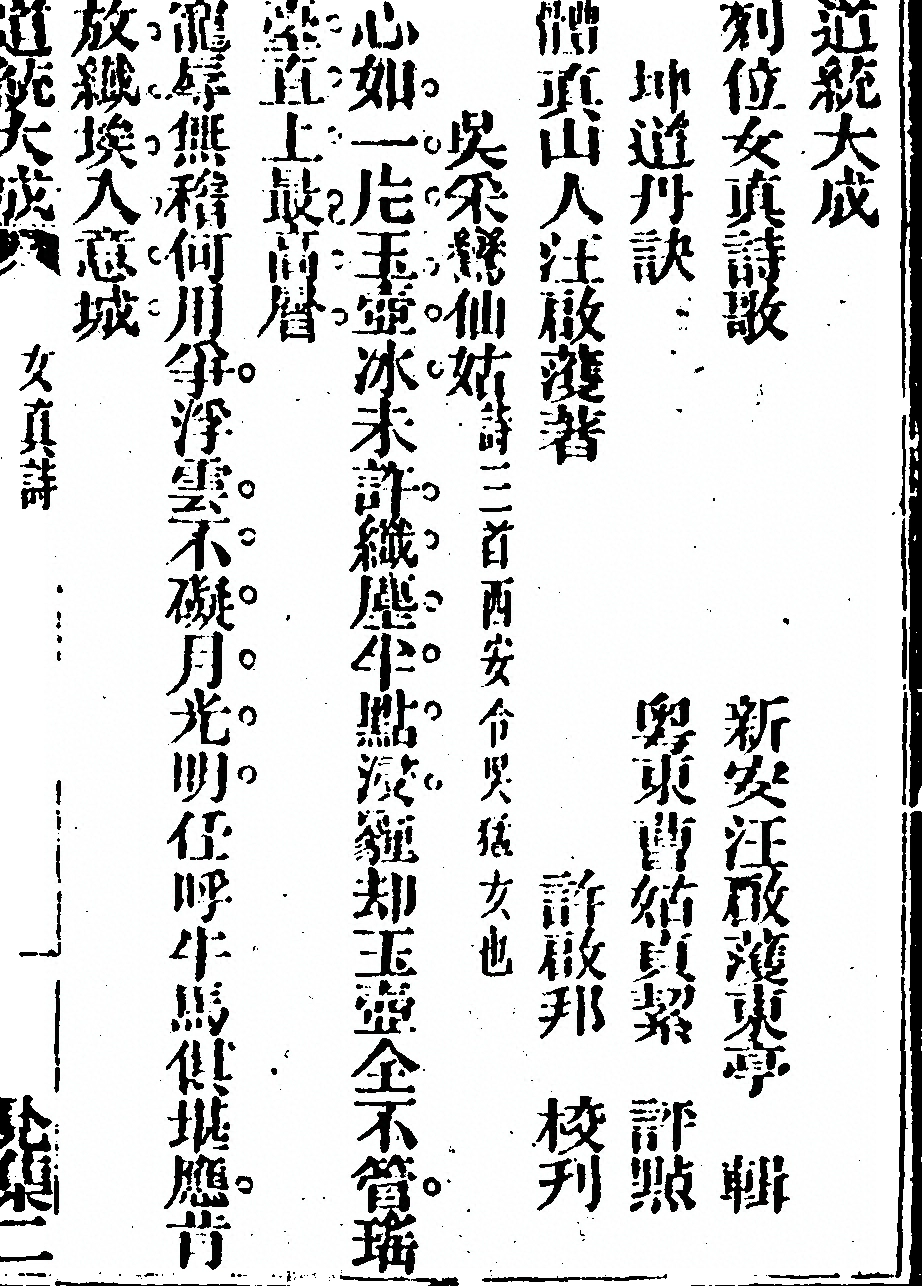 道統大成
列位女真詩歌
新安汪啟濩東亭 輯
坤道丹訣
粵東曹姑貞絜 評點
體真山人汪啟濩著
許啟邦 校刊
吳采鸞仙姑詩三首西安令吳猛女也
心如一片玉壺冰未許纖塵半點浸龥却玉壺全不管瑤
臺直上最高層
寵辱無稽何用爭浮雲不礙月光明任呼牛馬俱堪應肯
放纖埃入意城
道統大成
女真詩
集二